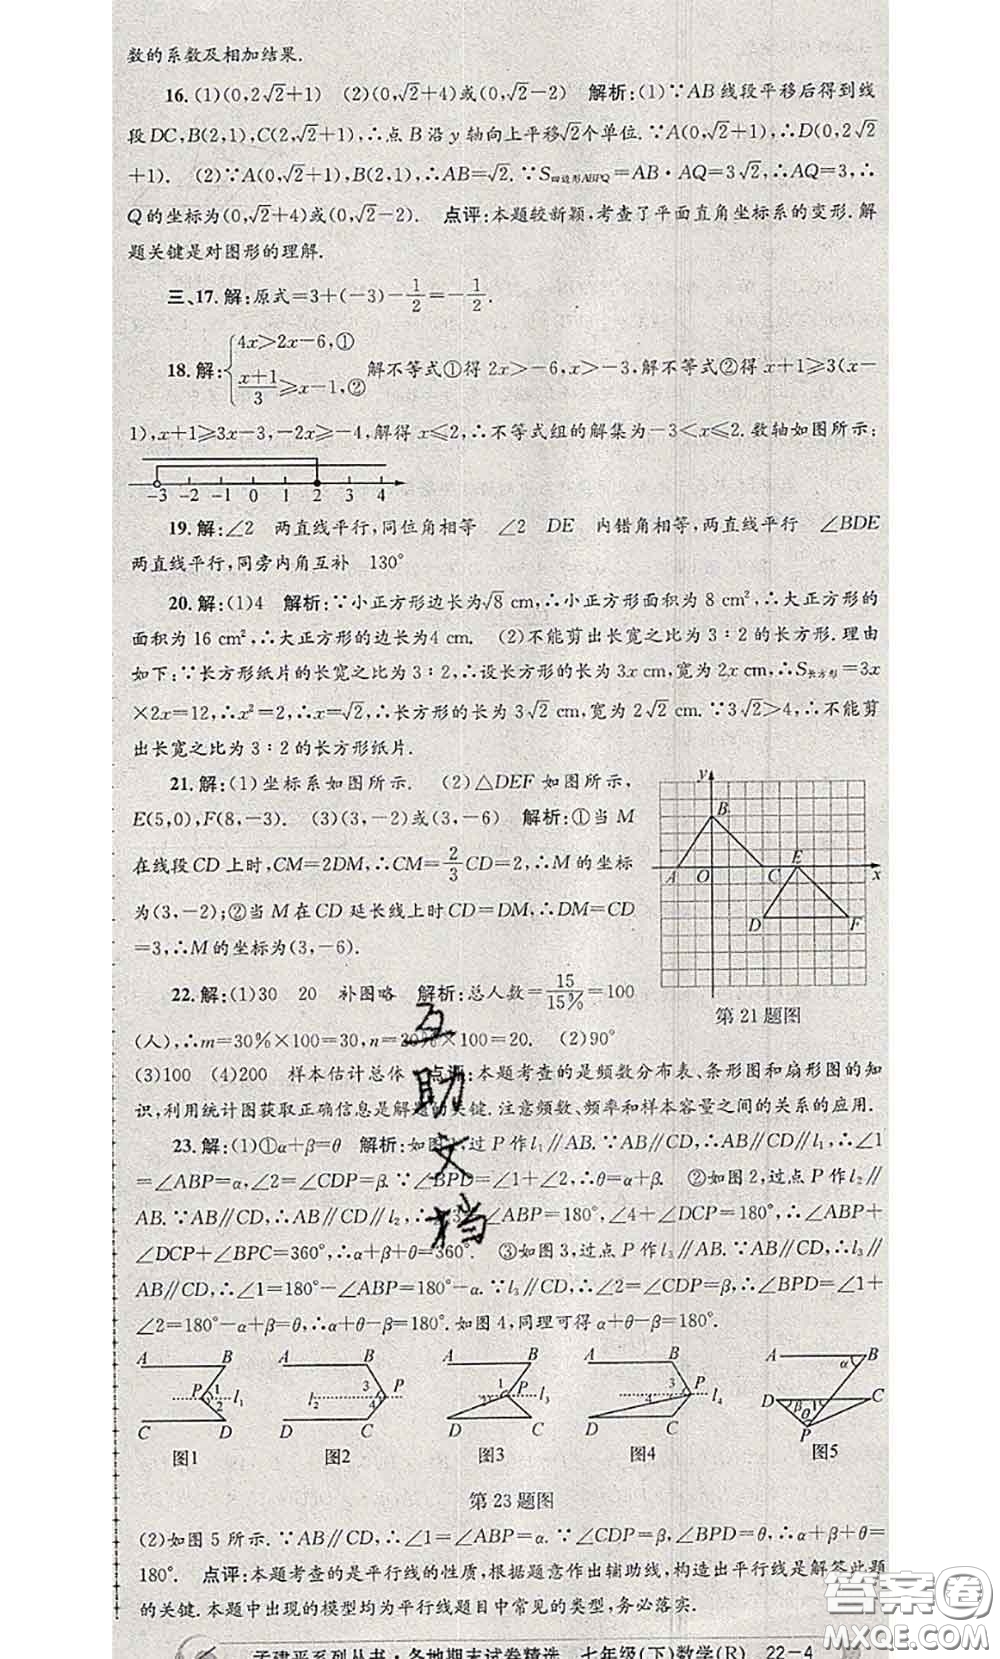 数的系数及相加结果.
16.(1)(0,2√2+1) (2)(0,√2+4)或(0,√2-2) 解析:(1)∵AB线段平移后得到线
段DC,B(2,1),C(2,√2+1),∴点B沿y轴向上平移√2个单位.∵A(0,√2+1),∴D(0,2√2
+1). (2)∵A(0,√2+1),B(2,1),∴AB=√2.∵S四边形ABPQ=AB·AQ=3√2,∴AQ=3,∴
Q的坐标为(0,√2+4)或(0,√2-2). 点评:本题较新颖,考查了平面直角坐标系的变形.解
题关键是对图形的理解.
三、17.解:原式=3+(-3)-1/2=-1/2.
18.解:{4x>2x-6,① (x+1)/3≥x-1,② 解不等式①得2x>-6,x>-3,解不等式②得x+1≥3(x-
1),x+1≥3x-3,-2x≥-4,解得x≤2,∴不等式组的解集为-3<x≤2.数轴如图所示:
-3 -2 -1 0 1 2 3 4
19.解:∠2 两直线平行,同位角相等 ∠2 DE 内错角相等,两直线平行 ∠BDE
两直线平行,同旁内角互补 130°
20.解:(1)4 解析:∵小正方形边长为√8 cm,∴小正方形面积为8 cm²,∴大正方形的
面积为16 cm²,∴大正方形的边长为4 cm. (2)不能剪出长宽之比为3∶2的长方形.理由
如下:∵长方形纸片的长宽之比为3∶2,∴设长方形的长为3x cm,宽为2x cm,∴S长方形=3x
×2x=12,∴x²=2,∴x=√2,∴长方形的长为3√2 cm,宽为2√2 cm.∵3√2>4,∴不能剪
出长宽之比为3∶2的长方形纸片.
21.解:(1)坐标系如图所示. (2)△DEF如图所示,
E(5,0),F(8,-3). (3)(3,-2)或(3,-6) 解析:①当M
在线段CD上时,CM=2DM,∴CM=2/3CD=2,∴M的坐标
为(3,-2);②当M在CD延长线上时CD=DM,∴DM=CD
=3,∴M的坐标为(3,-6).
y
B
A O C E x
D F
第21题图
22.解:(1)30 20 补图略 解析:总人数=15/15%=100
(人),∴m=30%×100=30,n=20%×100=20. (2)90°
(3)100 (4)200 样本估计总体 点评:本题考查的是频数分布表、条形图和扇形图的知
识,利用统计图获取正确信息是解题的关键.注意频数、频率和样本容量之间的关系的应用.
23.解:(1)①α+β=θ 解析:如图1,过P作l₁∥AB.∵AB∥CD,∴AB∥CD∥l₁,∴∠1
=∠ABP=α,∠2=∠CDP=β.∵∠BPD=∠1+∠2,∴θ=α+β. ②如图2,过点P作l₂∥
AB.∵AB∥CD,∴AB∥CD∥l₂,∴∠3+∠ABP=180°,∠4+∠DCP=180°,∴∠ABP+
∠DCP+∠BPC=360°,∴α+β+θ=360°. ③如图3,过点P作l₃∥AB.∵AB∥CD,∴l₃∥
AB∥CD,∴∠1=180°-∠ABP=180°-α.∵l₃∥CD,∴∠2=∠CDP=β,∴∠BPD=∠1+
∠2=180°-α+β=θ,∴α+θ-β=180°.如图4,同理可得α+θ-β=180°.
A B P 1 2 l₁ C D 图1
A B 3 P l₂ 4 C D 图2
A B 1 P l₃ 2 D C 图3
A B 3 P 4 l₄ D C 图4
A α B D β 1 C θ P 图5
第23题图
(2)如图5所示.∵AB∥CD,∴∠1=∠ABP=α.∵∠CDP=β,∠BPD=θ,∴α+β+θ=
180°. 点评:本题考查的是平行线的性质,根据题意作出辅助线,构造出平行线是解答此题
的关键.本题中出现的模型均为平行线题目中常见的类型,务必落实.
孟建平系列丛书·各地期末试卷精选 七年级(下)数学(R) 22-4
互助文档
答案圈
MXQE.COM